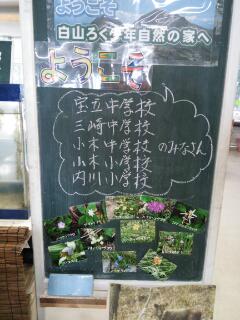 ようこそ
白山ろく少年自然の家へ
ようこそ
宝立中学校
三崎中学校
小木中学校
小木小学校
内川小学校
のみなさん